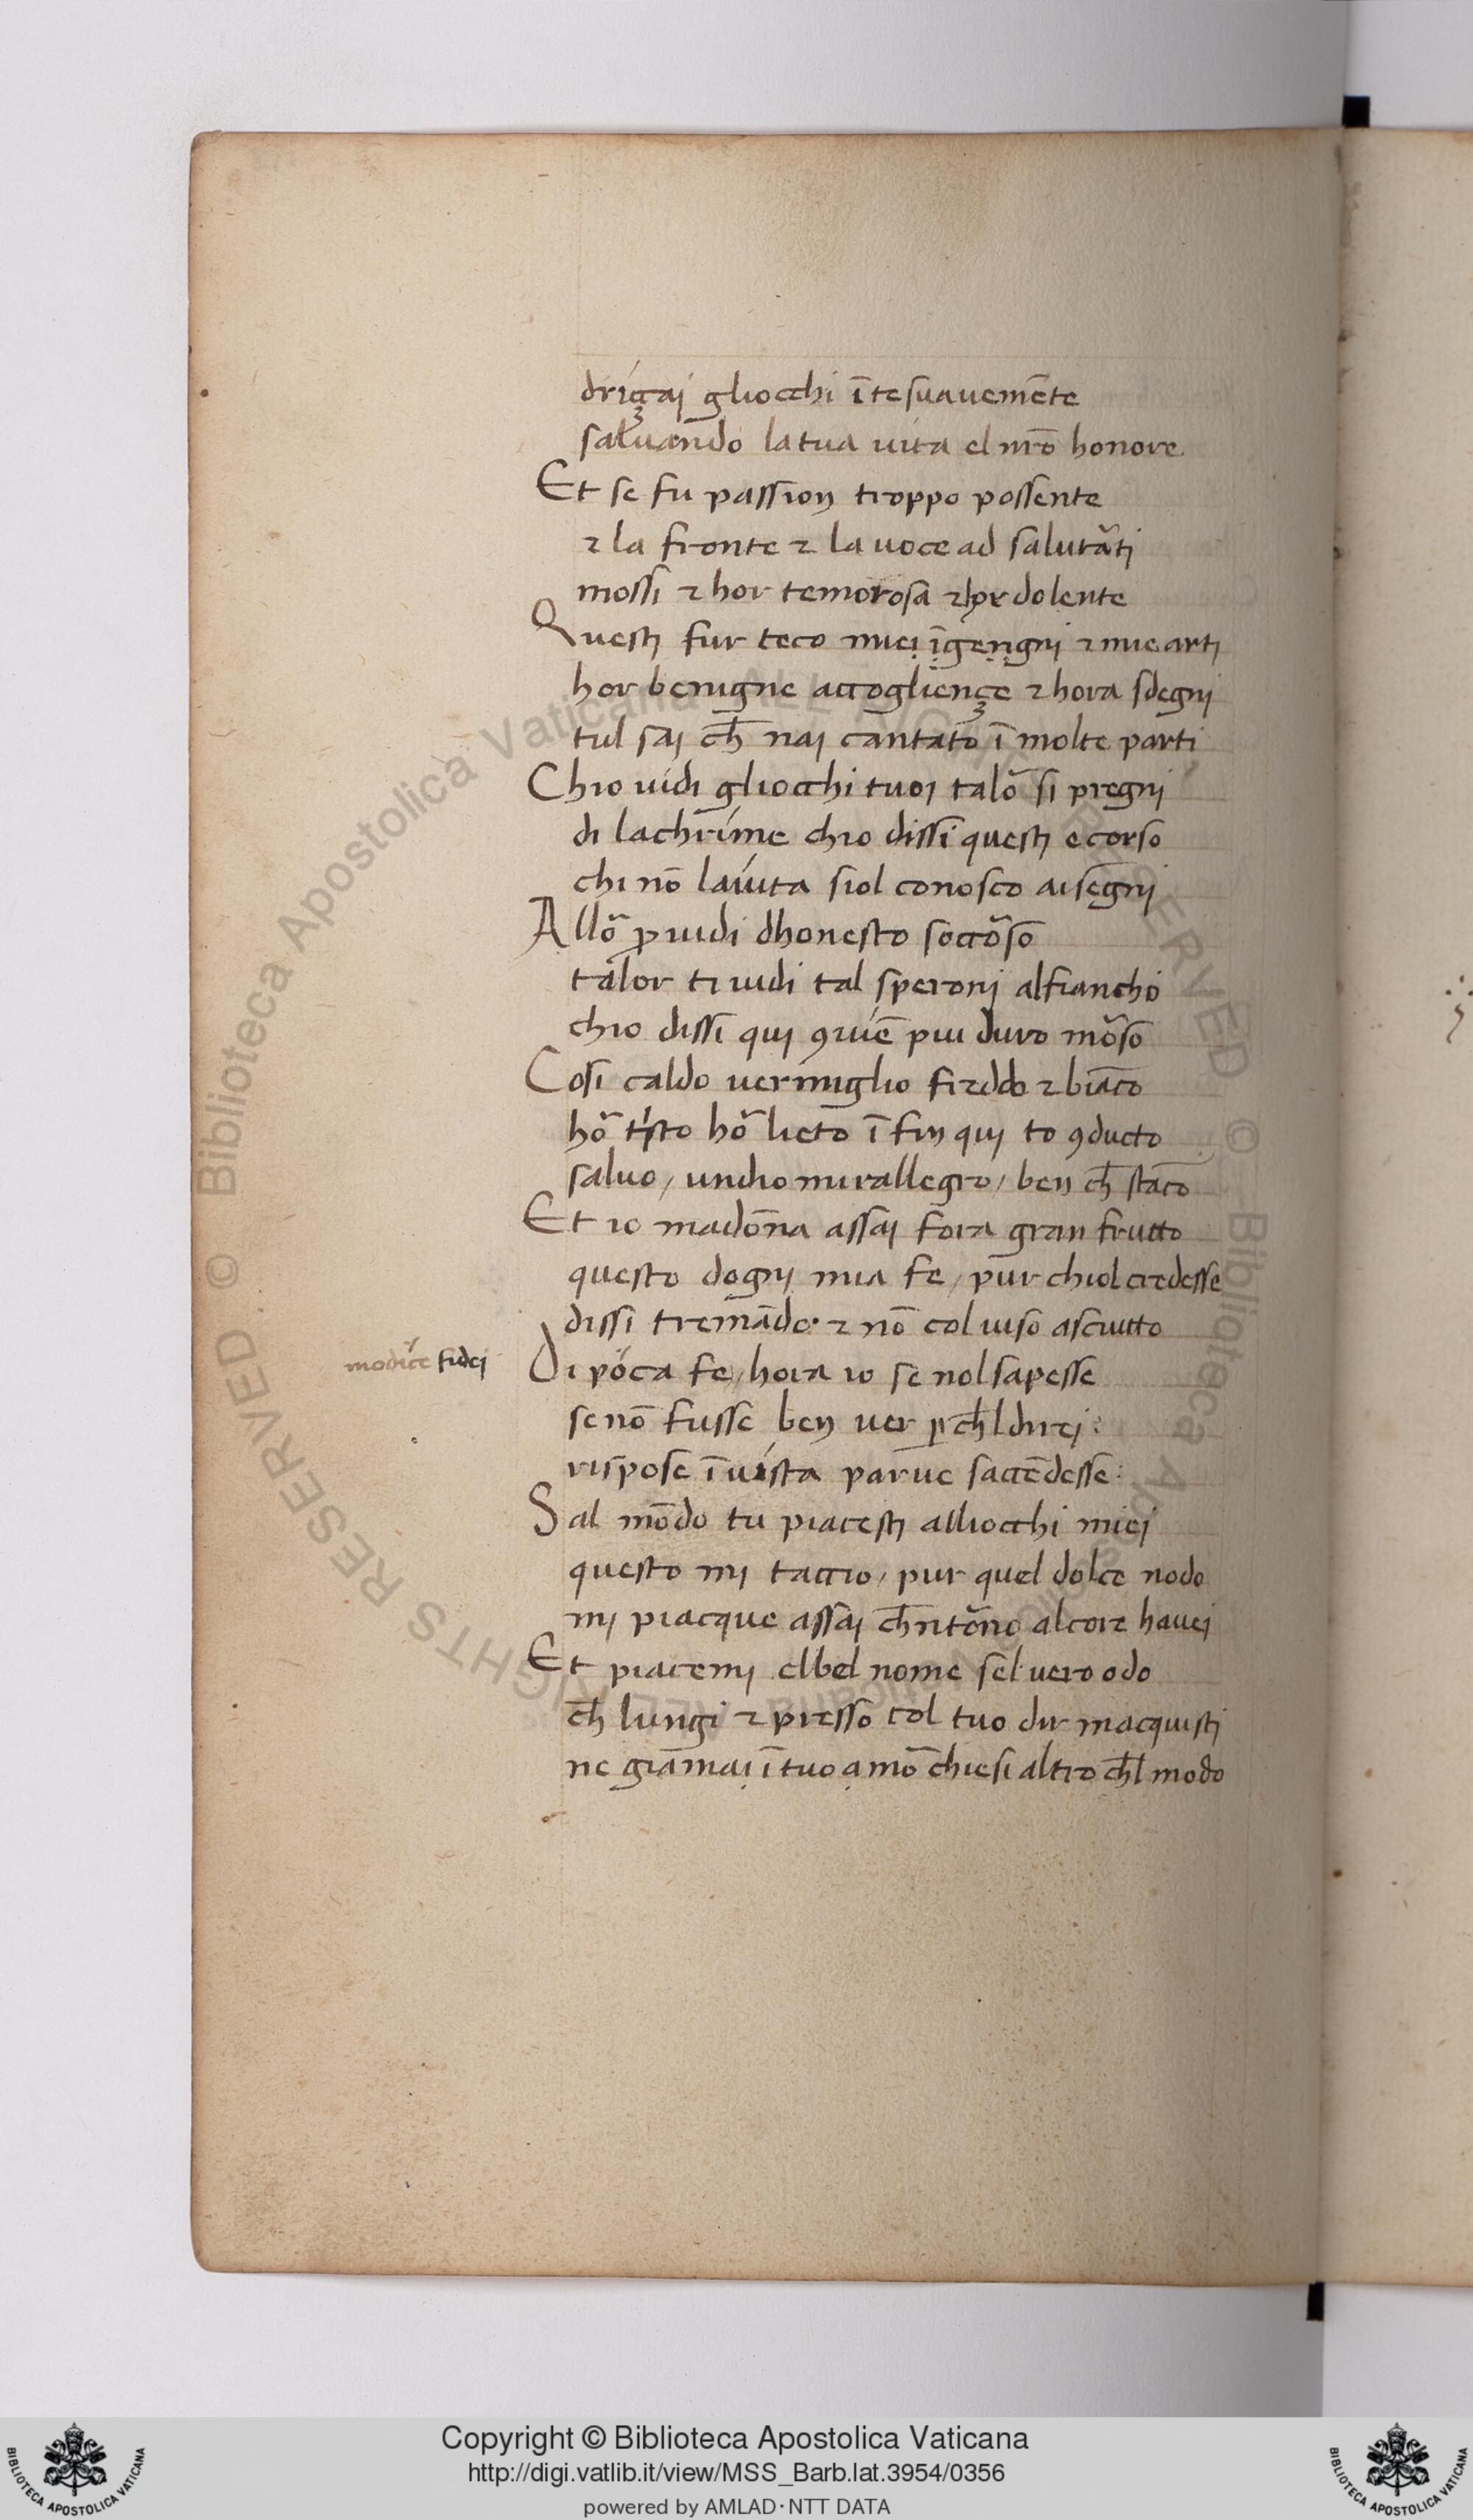 driçaj gliocchi ī te suauemēte
saluando la tua uita el nr̄o honore
Et se fu passion troppo possente
⁊ la fronte ⁊ la uoce ad salutarti
mossi ⁊ hor temorosa ⁊ hor dolente
Questi fur teco miei īgegni ⁊ mie arti
hor benigne accogliençe ⁊ hora sdegni
tul saj ch̄ naj cantato ī molte parti
Chio uidi gliocchi tuoi talor si pregni
di lachrime chio dissi questi e corso
chi nō laiuta siol conosco ai segni
Allor ꝓuidi dhonesto soccorso
talor ti uidi tal speroni al fiancho
chio dissi qui ꝯuiē piu duro morso
Cosi caldo uermiglio freddo ⁊ biāco
hor tristo hor lieto ī fin qui to ꝯducto
saluo / undio mirallegro / ben ch̄ stāco
Et io madōna assaj fora gran frutto
questo dogni mia fe / pur chiol credesse
dissi tremādo ⁊ nō col uiso asciutto
modice fidei
Di poca fe / hora io se nol sapesse
se nō fusse ben uer ꝑch̄l direi:
rispose ī uista parue saccēdesse:
Sal mōdo tu piacesti alliocchi miei
questo mi taccio / pur quel dolce nodo
mi piacque assaj ch̄ntorno al core hauei
Et piacemi el bel nome sel uero odo
ch̄ lungi ⁊ presso col tuo dir macquisti
ne giāmai ī tuo amor chiesi altro ch̄l modo
Copyright © Biblioteca Apostolica Vaticana
http://digi.vatlib.it/view/MSS_Barb.lat.3954/0356
powered by AMLAD·NTT DATA